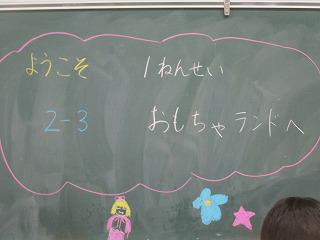 ようこそ 1ねんせい
2-3 おもちゃランドへ